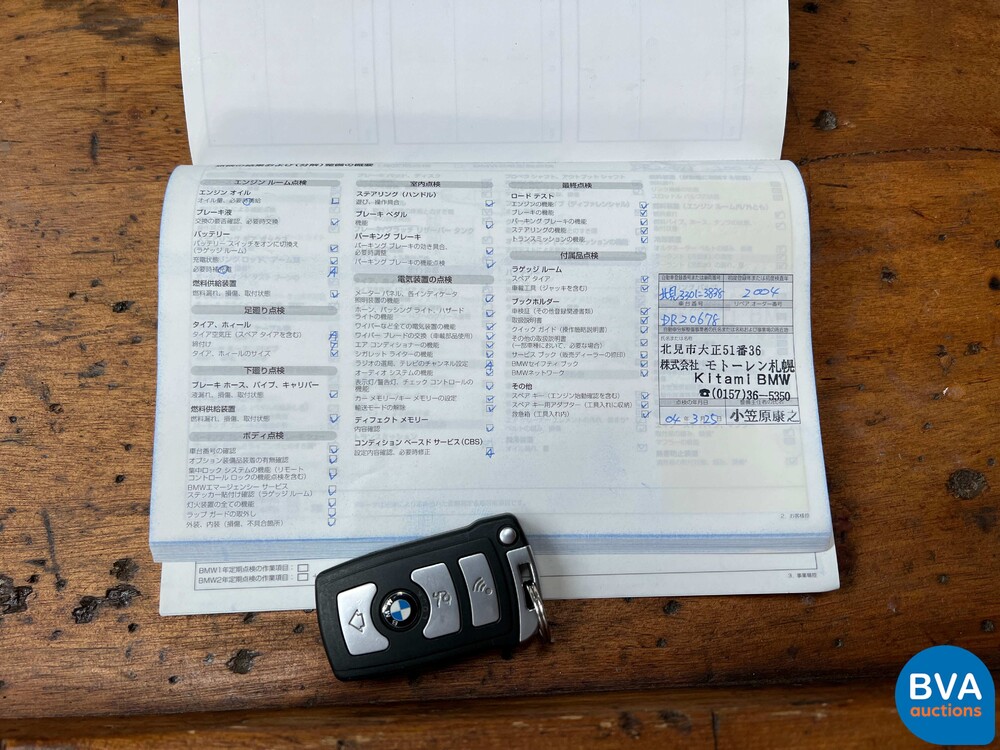 エンジン ルーム点検
エンジン オイル
ブレーキ液
交換の要否確認、必要時交換
バッテリー
バッテリー スイッチをオンに切換え
(ラゲッジルーム)
充電状態
燃料供給装置
燃料漏れ、損傷、取付状態
足廻り点検
タイヤ、ホィール
タイヤ空気圧(スペア タイヤを含む)
締付け
タイヤ、ホィールのサイズ
下廻り点検
ブレーキ ホース、パイプ、キャリパー
液漏れ、損傷、取付状態
燃料供給装置
燃料漏れ、損傷、取付状態
ボディ点検
車台番号の確認
オプション装備品装着の有無確認
集中ロック システムの機能(リモート
コントロール ロックの機能点検を含む)
BMWエマージェンシー サービス
ステッカー貼付け確認(ラゲッジ ルーム)
灯火装置の全ての機能
ラップ ガードの取外し
外装、内装(損傷、不具合箇所)
室内点検
ステアリング(ハンドル)
遊び、操作具合
ブレーキ ペダル
機能
パーキング ブレーキ
パーキング ブレーキの効き具合、
必要時調整
パーキング ブレーキの機能点検
電気装置の点検
メーター パネル、各インディケータ
照明装置の機能
ホーン、パッシング ライト、ハザード
ライトの機能
ワイパーなど全ての電気装置の機能
ワイパー ブレードの交換(車載部品使用)
エア コンディショナーの機能
シガレット ライターの機能
ラジオの選局、テレビのチャンネル設定
オーディオ システムの機能
表示灯/警告灯、チェック コントロールの
機能
カー メモリー/キー メモリーの設定
輸送モードの解除
ディフェクト メモリー
内容確認
コンディション ベースド サービス(CBS)
設定内容確認、必要時修正
最終点検
ロード テスト
エンジンの機能
ブレーキの機能
パーキング ブレーキの機能
ステアリングの機能
トランスミッションの機能
付属品点検
ラゲッジ ルーム
スペア タイヤ
車載工具(ジャッキを含む)
ブックホルダー
車検証(その他登録関連書類)
取扱説明書
クイック ガイド(操作簡略説明書)
その他の取扱説明書
(一部車種において、必要な場合)
サービス ブック(販売ディーラーの捺印)
BMWセイフティ ブック
BMWネットワーク
その他
スペア キー(エンジン始動確認を含む)
スペア キー用アダプター(工具入れに収納)
救急箱(工具入れ内)
北見 330に3838
2004
車台番号
リペア オーダー番号
DR20678
北見市大正51番36
株式会社 モトーレン札幌
Kitami BMW
☎(0157)36-5350
点検の年月日
04 年 3月25日
小笠原康之
BMW1年定期点検の作業項目:
BMW2年定期点検の作業項目:
BMW
BVA
auctions